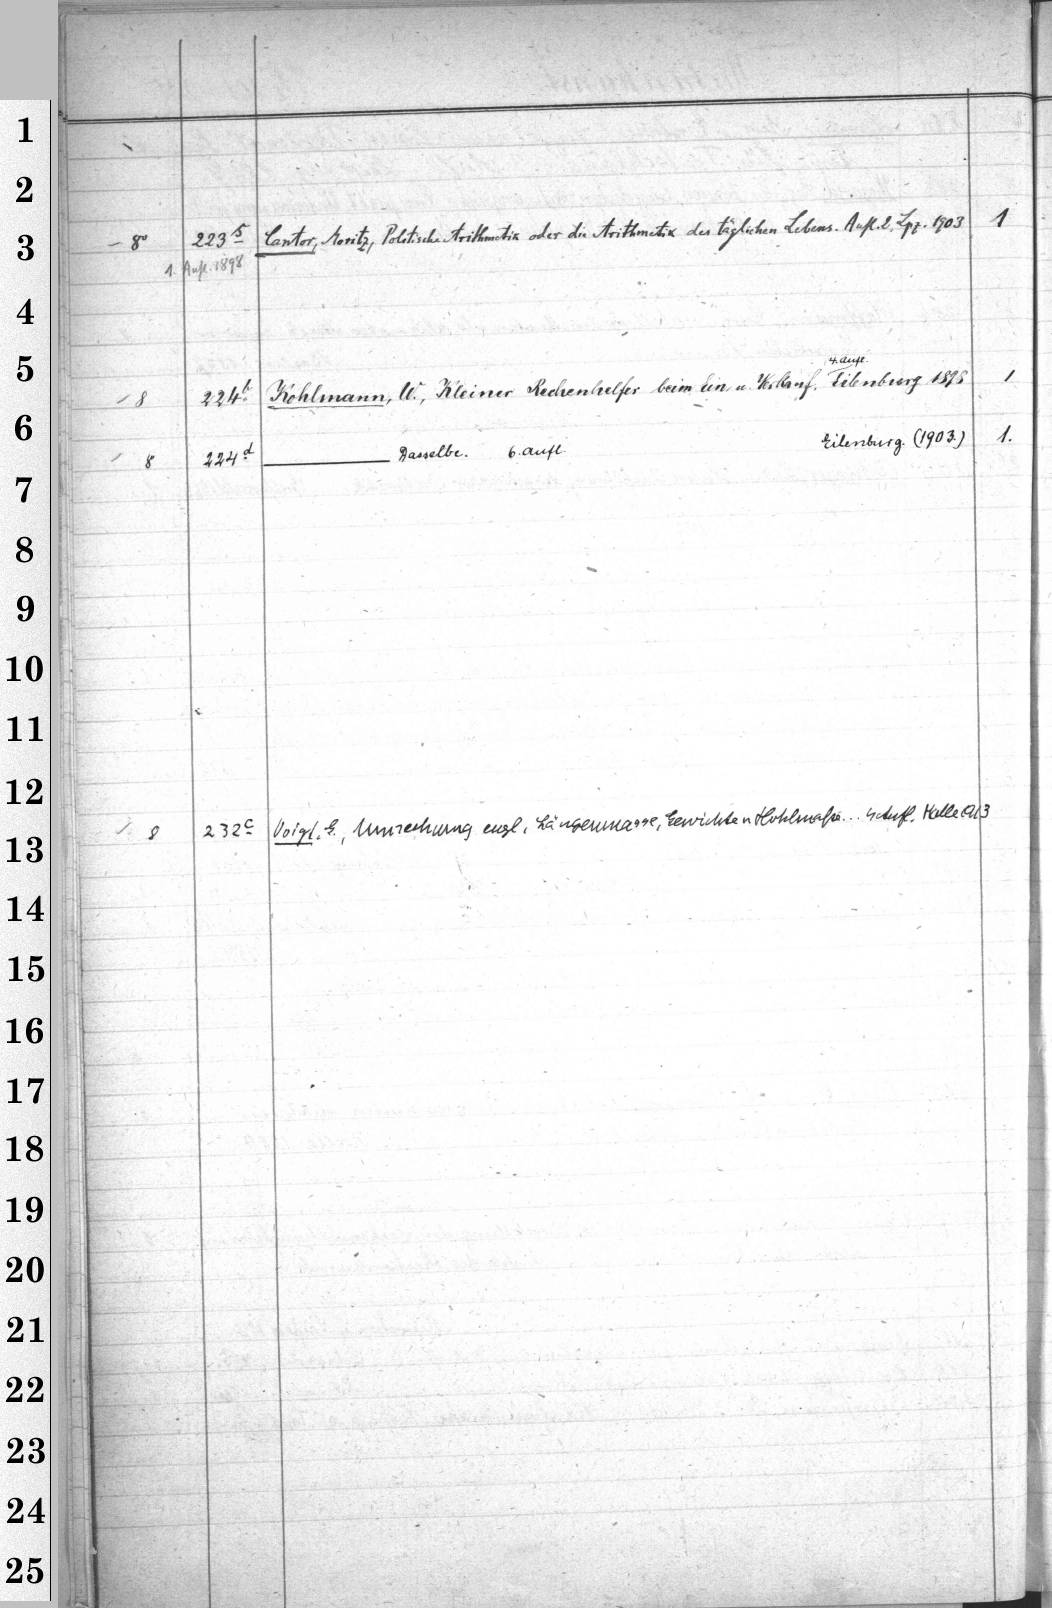 1
2
3
4
5
6
7
8
9
10
11
12
13
14
15
16
17
18
19
20
21
22
23
24
25
– 8° 223 5 Cantor, Moritz, Politische Arithmetik oder die Arithmetik des täglichen Lebens. Aufl. 2. Lpz. 1903 1
1. Aufl. 1898
4. Aufl.
8 224 b Kohlmann, W., Kleiner Rechenhelfer beim Ein u. Verkauf. Eilenburg 1898 1
8 224 d Dasselbe. 6. Aufl. Eilenburg. (1903.) 1.
8 232 c Voigt, E., Umrechnung engl. Längenmasse, Gewichte u Hohlmaße... 4 Aufl. Halle 913